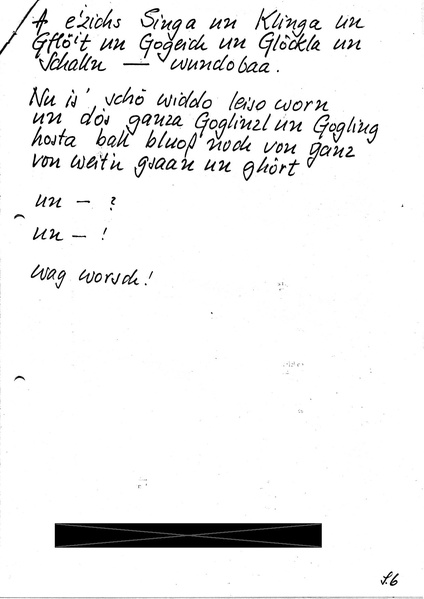 A e'zichs Singa un Klinga un
Gflöit un Gogeich un Glöckla un
Schalln — wundobaa.
Nu is' schö widdo leiso worn
un dös ganza Goglinzl un Gogling
hosta ball bluoß noch von ganz
von weit'n gsaan un ghört
un – ?
un – !
Wag worsch!
S.6